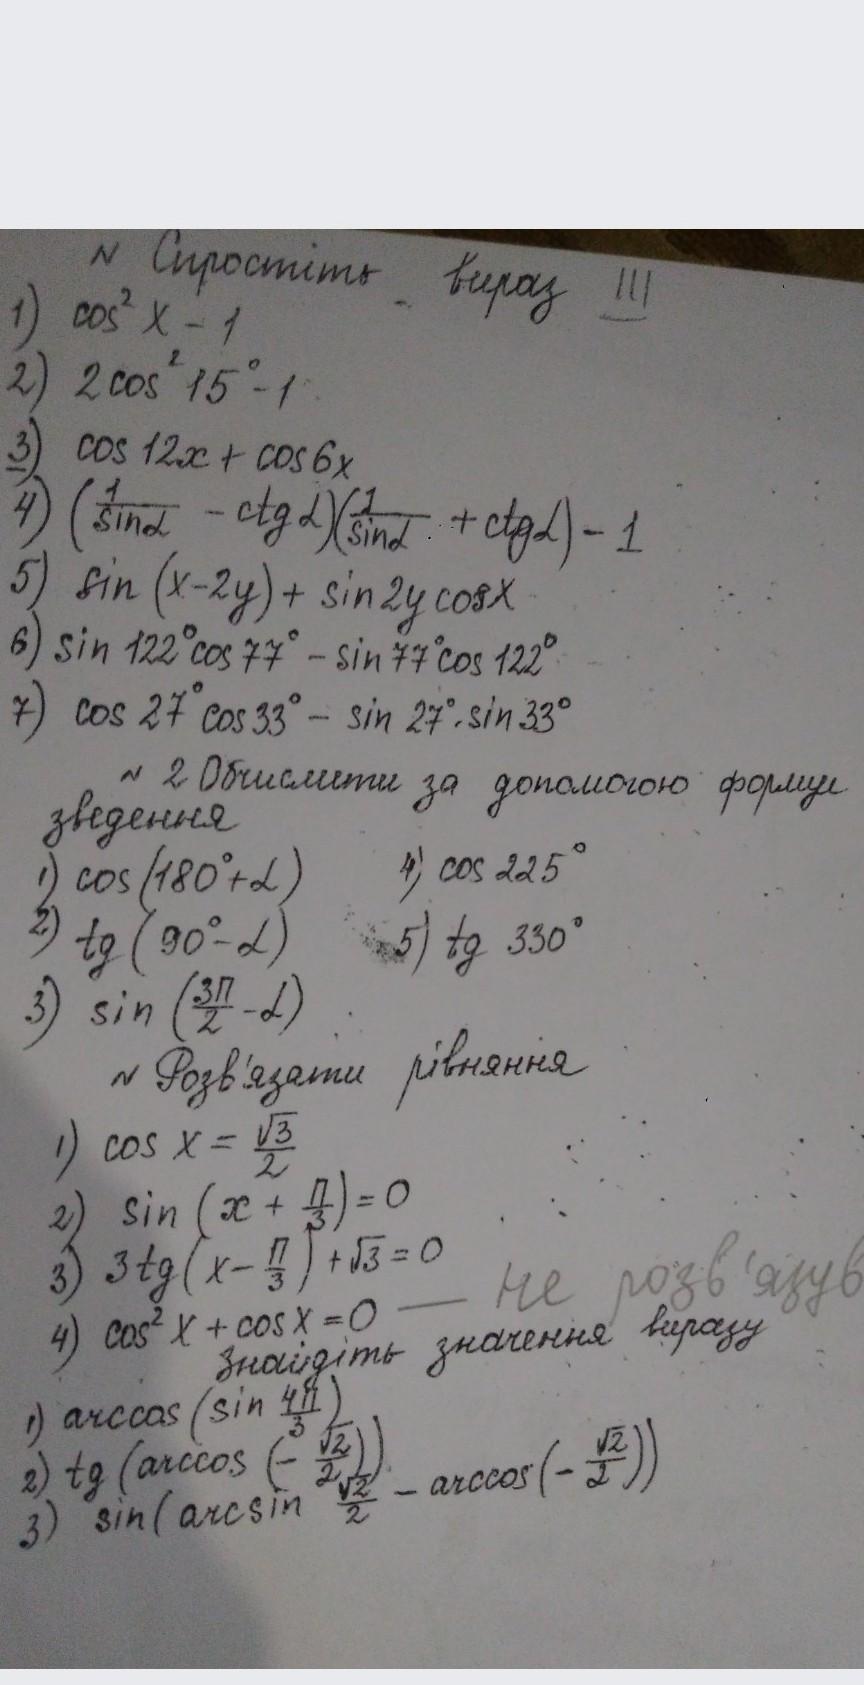 ~ Спростіть вираз III
1) cos² x - 1
2) 2cos² 15° - 1
3) cos 12x + cos 6x
4) (1/sinα - ctg α)(1/sinα + ctgα) - 1
5) sin (x-2y) + sin 2y cosx
6) sin 122° cos 77° - sin 77° cos 122°
7) cos 27° cos 33° - sin 27° · sin 33°
~ 2 Обчислити за допомогою формул
зведення
1) cos(180°+α) 4) cos 225°
2) tg (90°-α) 5) tg 330°
3) sin (3П/2 -α)
~ Розв'язати рівняння
1) cos x = √3/2
2) sin (x + П/3) = 0
3) 3tg(x - П/3) + √3 = 0
4) cos² x + cos x = 0 — не розв'язув
Знайдіть значення виразу
1) arccos (sin 4П/3)
2) tg (arccos (- √2/2))
3) sin( arcsin √2/2 - arccos (- √2/2))